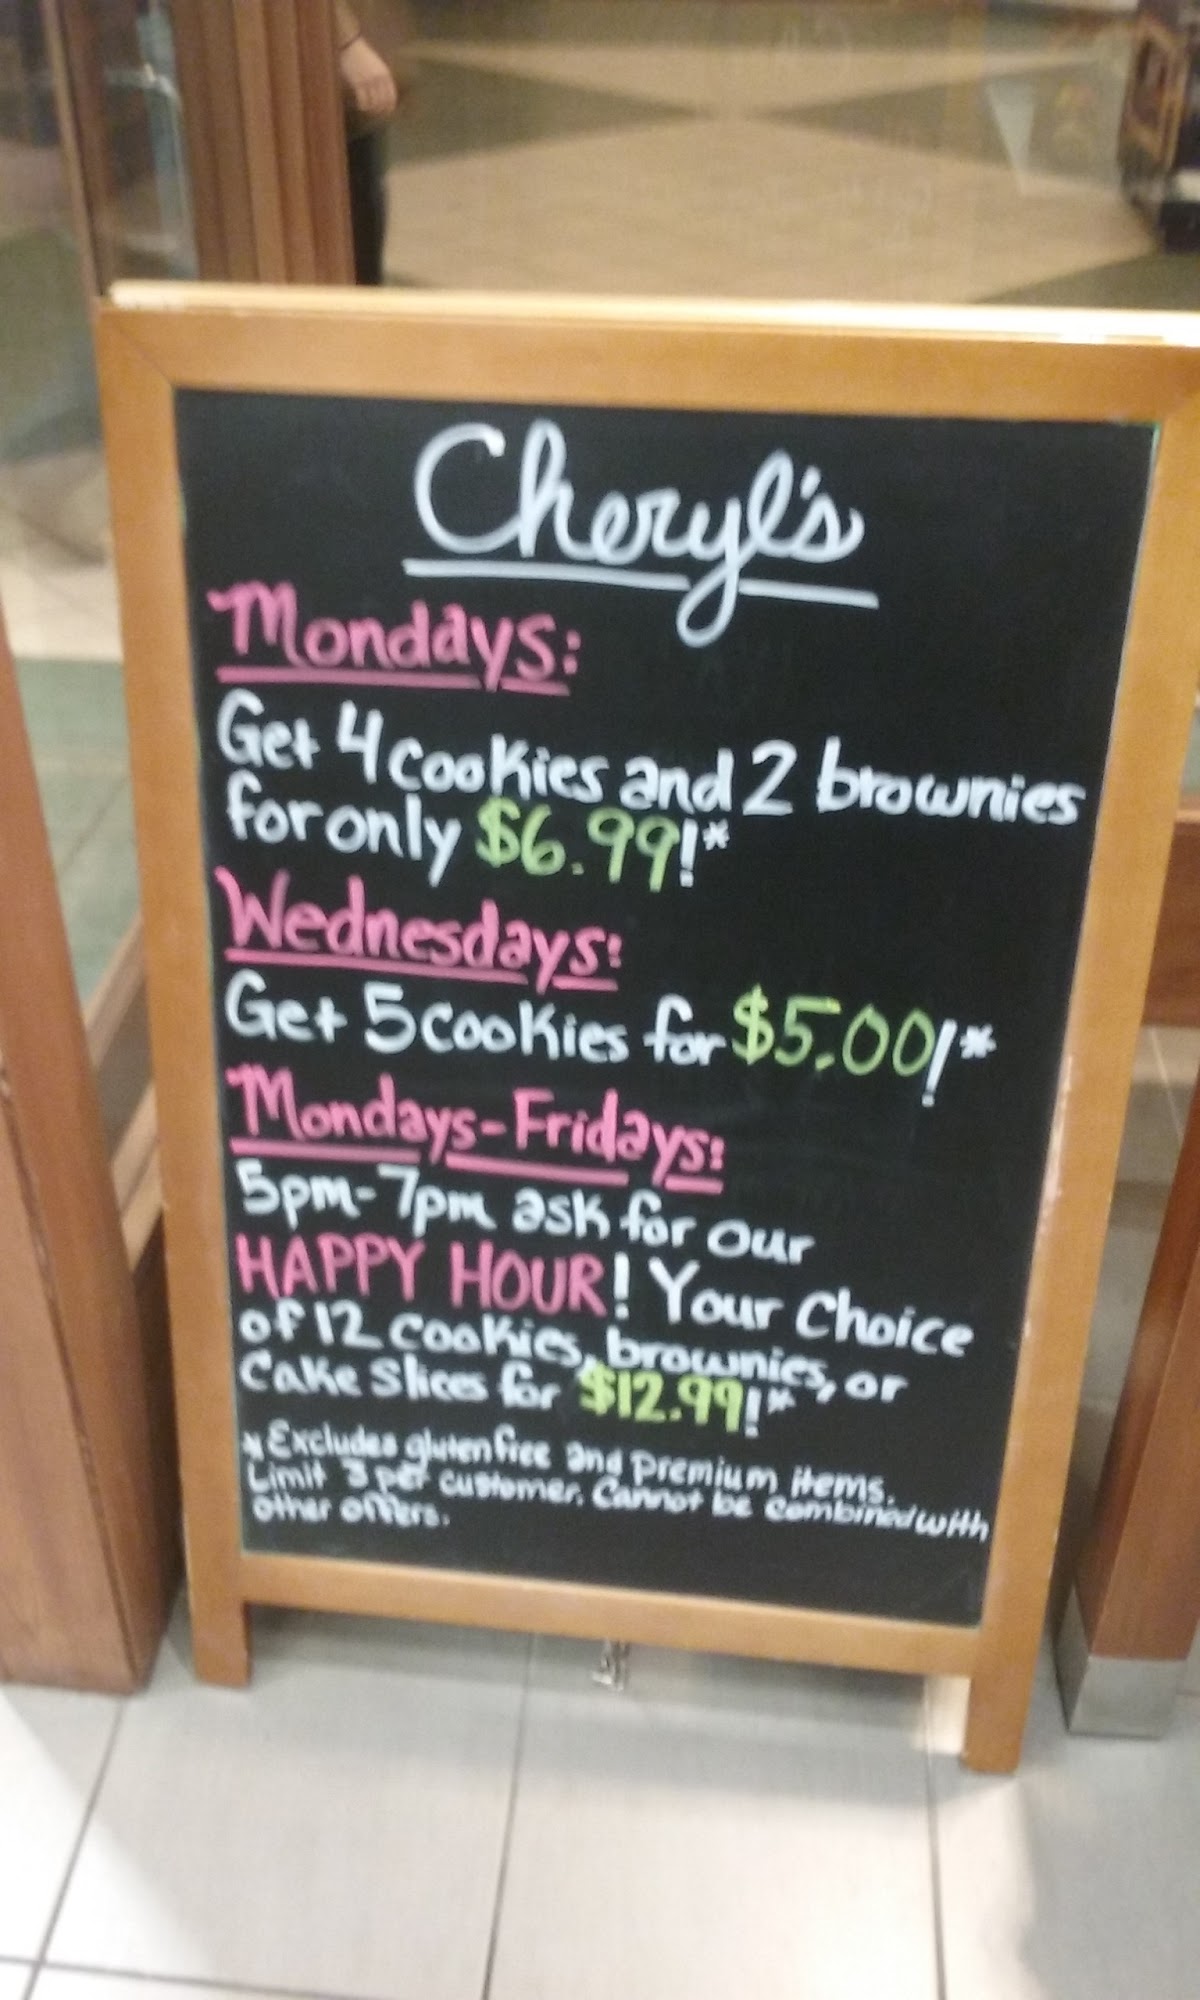 Cheryl's
Mondays:
Get 4 cookies and 2 brownies
for only $6.99!*
Wednesdays:
Get 5 cookies for $5.00!*
Mondays-Fridays:
5pm-7pm ask for our
HAPPY HOUR! Your Choice
of 12 cookies, brownies, or
Cake Slices for $12.99!*
*Excludes gluten free and Premium items.
Limit 3 per customer. Cannot be combined with
other offers.